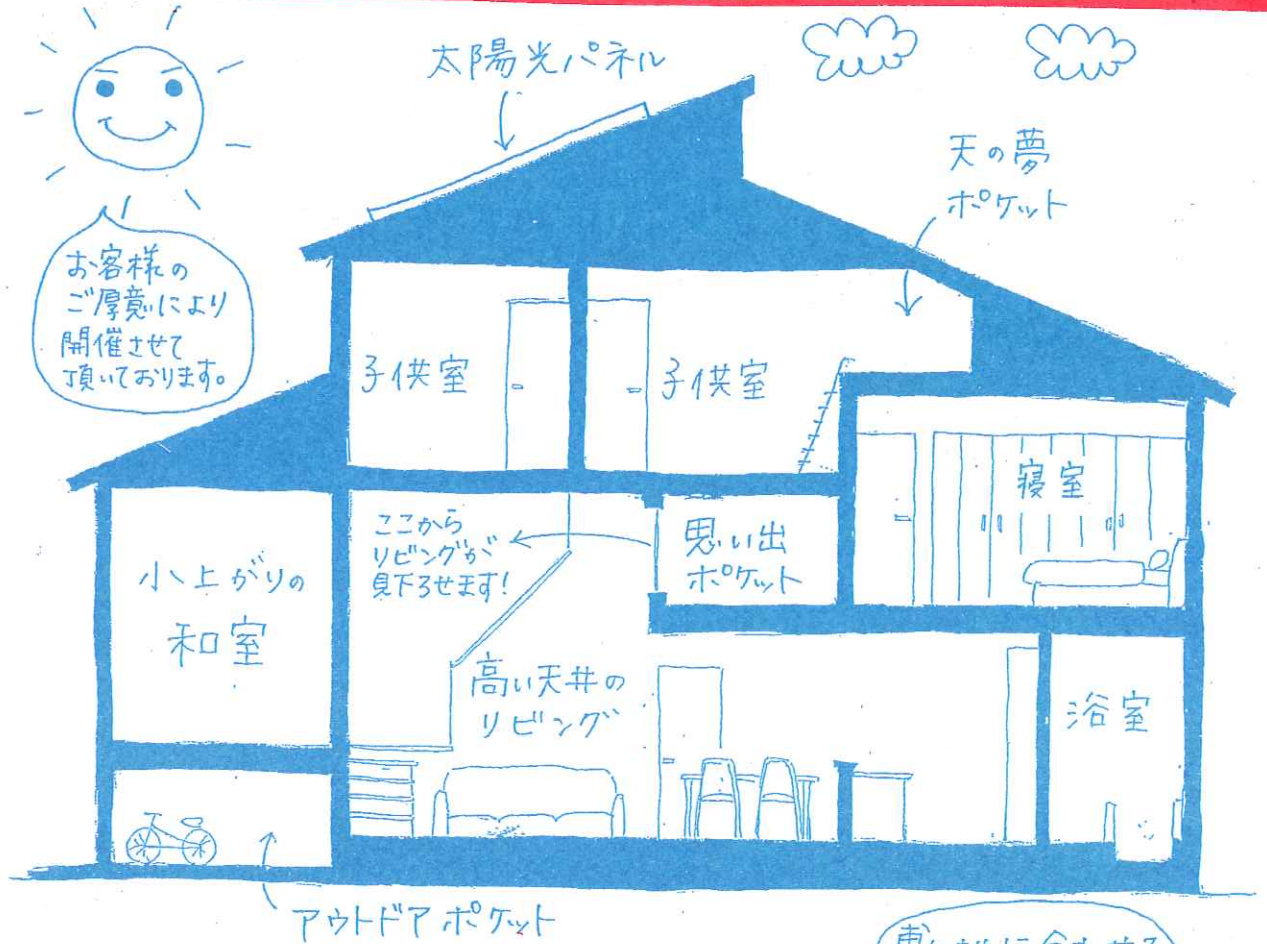 太陽光パネル
天の夢
ポケット
お客様の
ご厚意により
開催させて
頂いております。
子供室
子供室
寝室
ここから
リビングが
見下ろせます!
思い出
ポケット
小上がりの
和室
高い天井の
リビング
浴室
アウトドアポケット